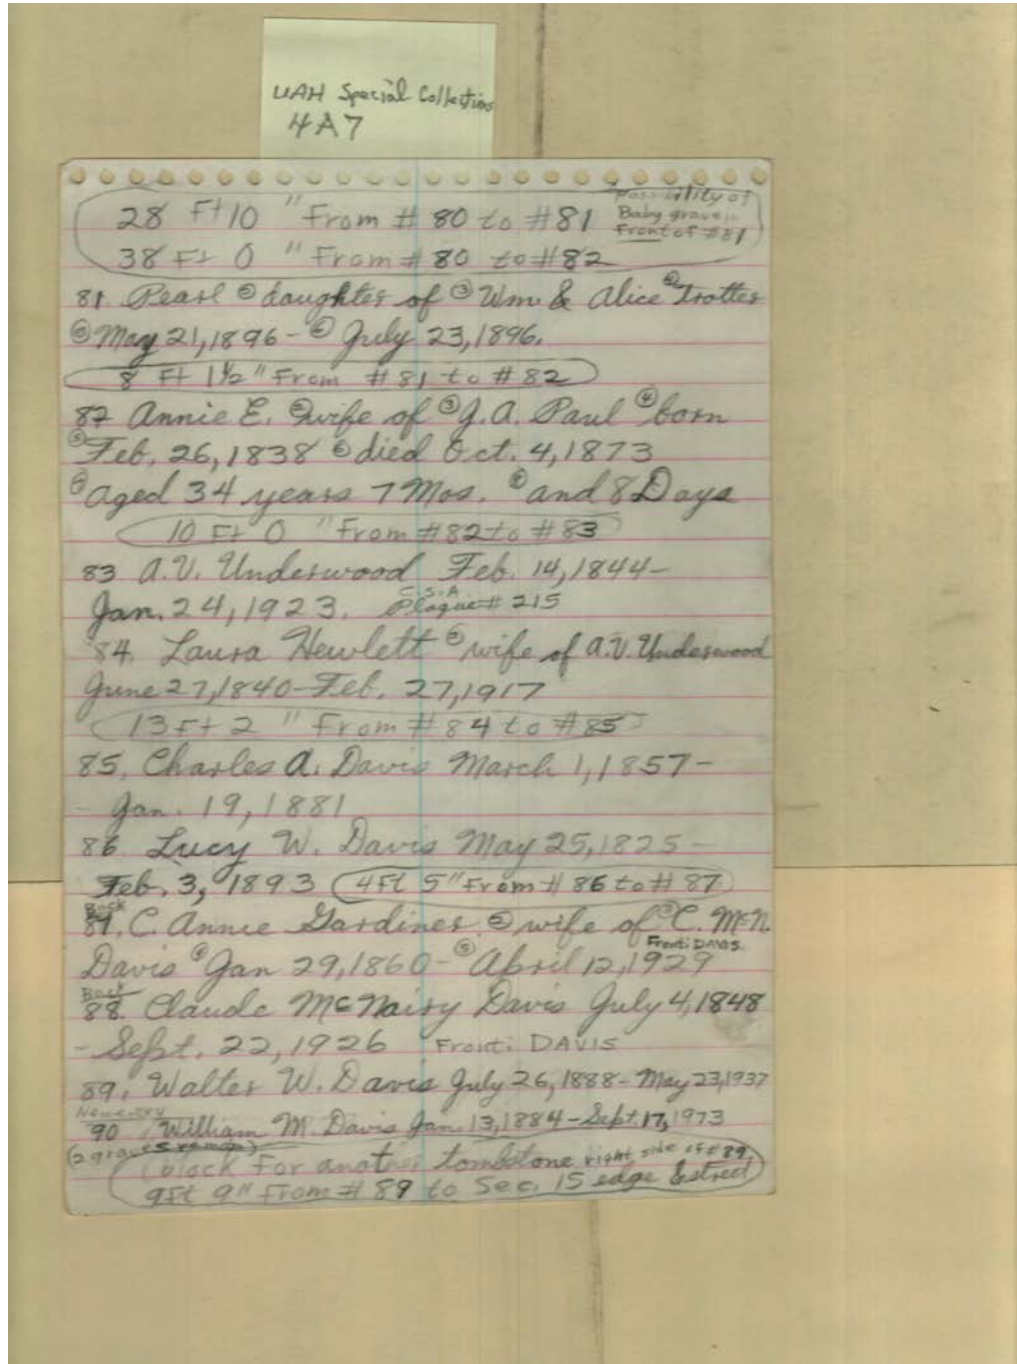 UAH Special Collections
4A7
28 Ft 10 " From # 80 to # 81
Possibility of
Baby grave in
Front of #81
38 Ft 0 " From # 80 to #82
81. Pearl ② daughter of ③ Wm. & Alice ④ Trotter
⑤ May 21, 1896 - ⑥ July 23, 1896.
8 Ft 1½ " From # 81 to # 82
82 Annie E. ② wife of ③ J.A. Paul ④ born
⑤ Feb. 26, 1838 ⑥ died Oct. 4, 1873
⑦ aged 34 years 7 Mos. ⑧ and 8 Days
10 Ft 0 " From #82 to # 83
83 A.V. Underwood Feb. 14, 1844-
Jan. 24, 1923. C.S.A Plaque # 215
84. Laura Hewlett ② wife of A.V. Underwood
June 27, 1840 - Feb. 27, 1917
13 Ft 2 " From # 84 to #85
85. Charles A. Davis March 1, 1857 -
- Jan. 19, 1881
86. Lucy W. Davis May 25, 1825 -
Feb. 3, 1893 4 Ft 5" From # 86 to # 87
Back
87. C. Annie Gardiner ② wife of ③ C. McN.
Front: DAVIS.
Davis ④ Jan 29, 1860 - ⑤ April 12, 1929
Back
88. Claude McNairy Davis July 4, 1848
- Sept. 22, 1926 Front: DAVIS
89. Walter W. Davis July 26, 1888 - May 23, 1937
90 William M. Davis Jan. 13, 1884 - Sept. 17, 1973
(2 graves
block For another tombstone right side of #89,
9Ft 9" From # 89 to Sec. 15 edge E street